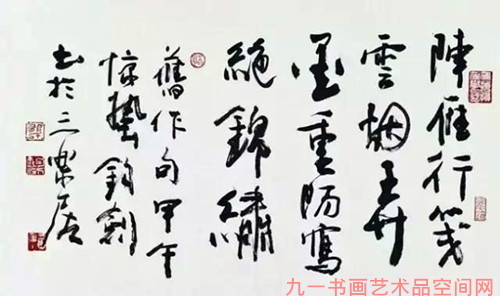 陣雁行箋
雲烟弄
墨重陌寫
絕錦繡
舊作句甲午
惊蟄鈞剑
书於三樂居
九一书画艺术品空间网